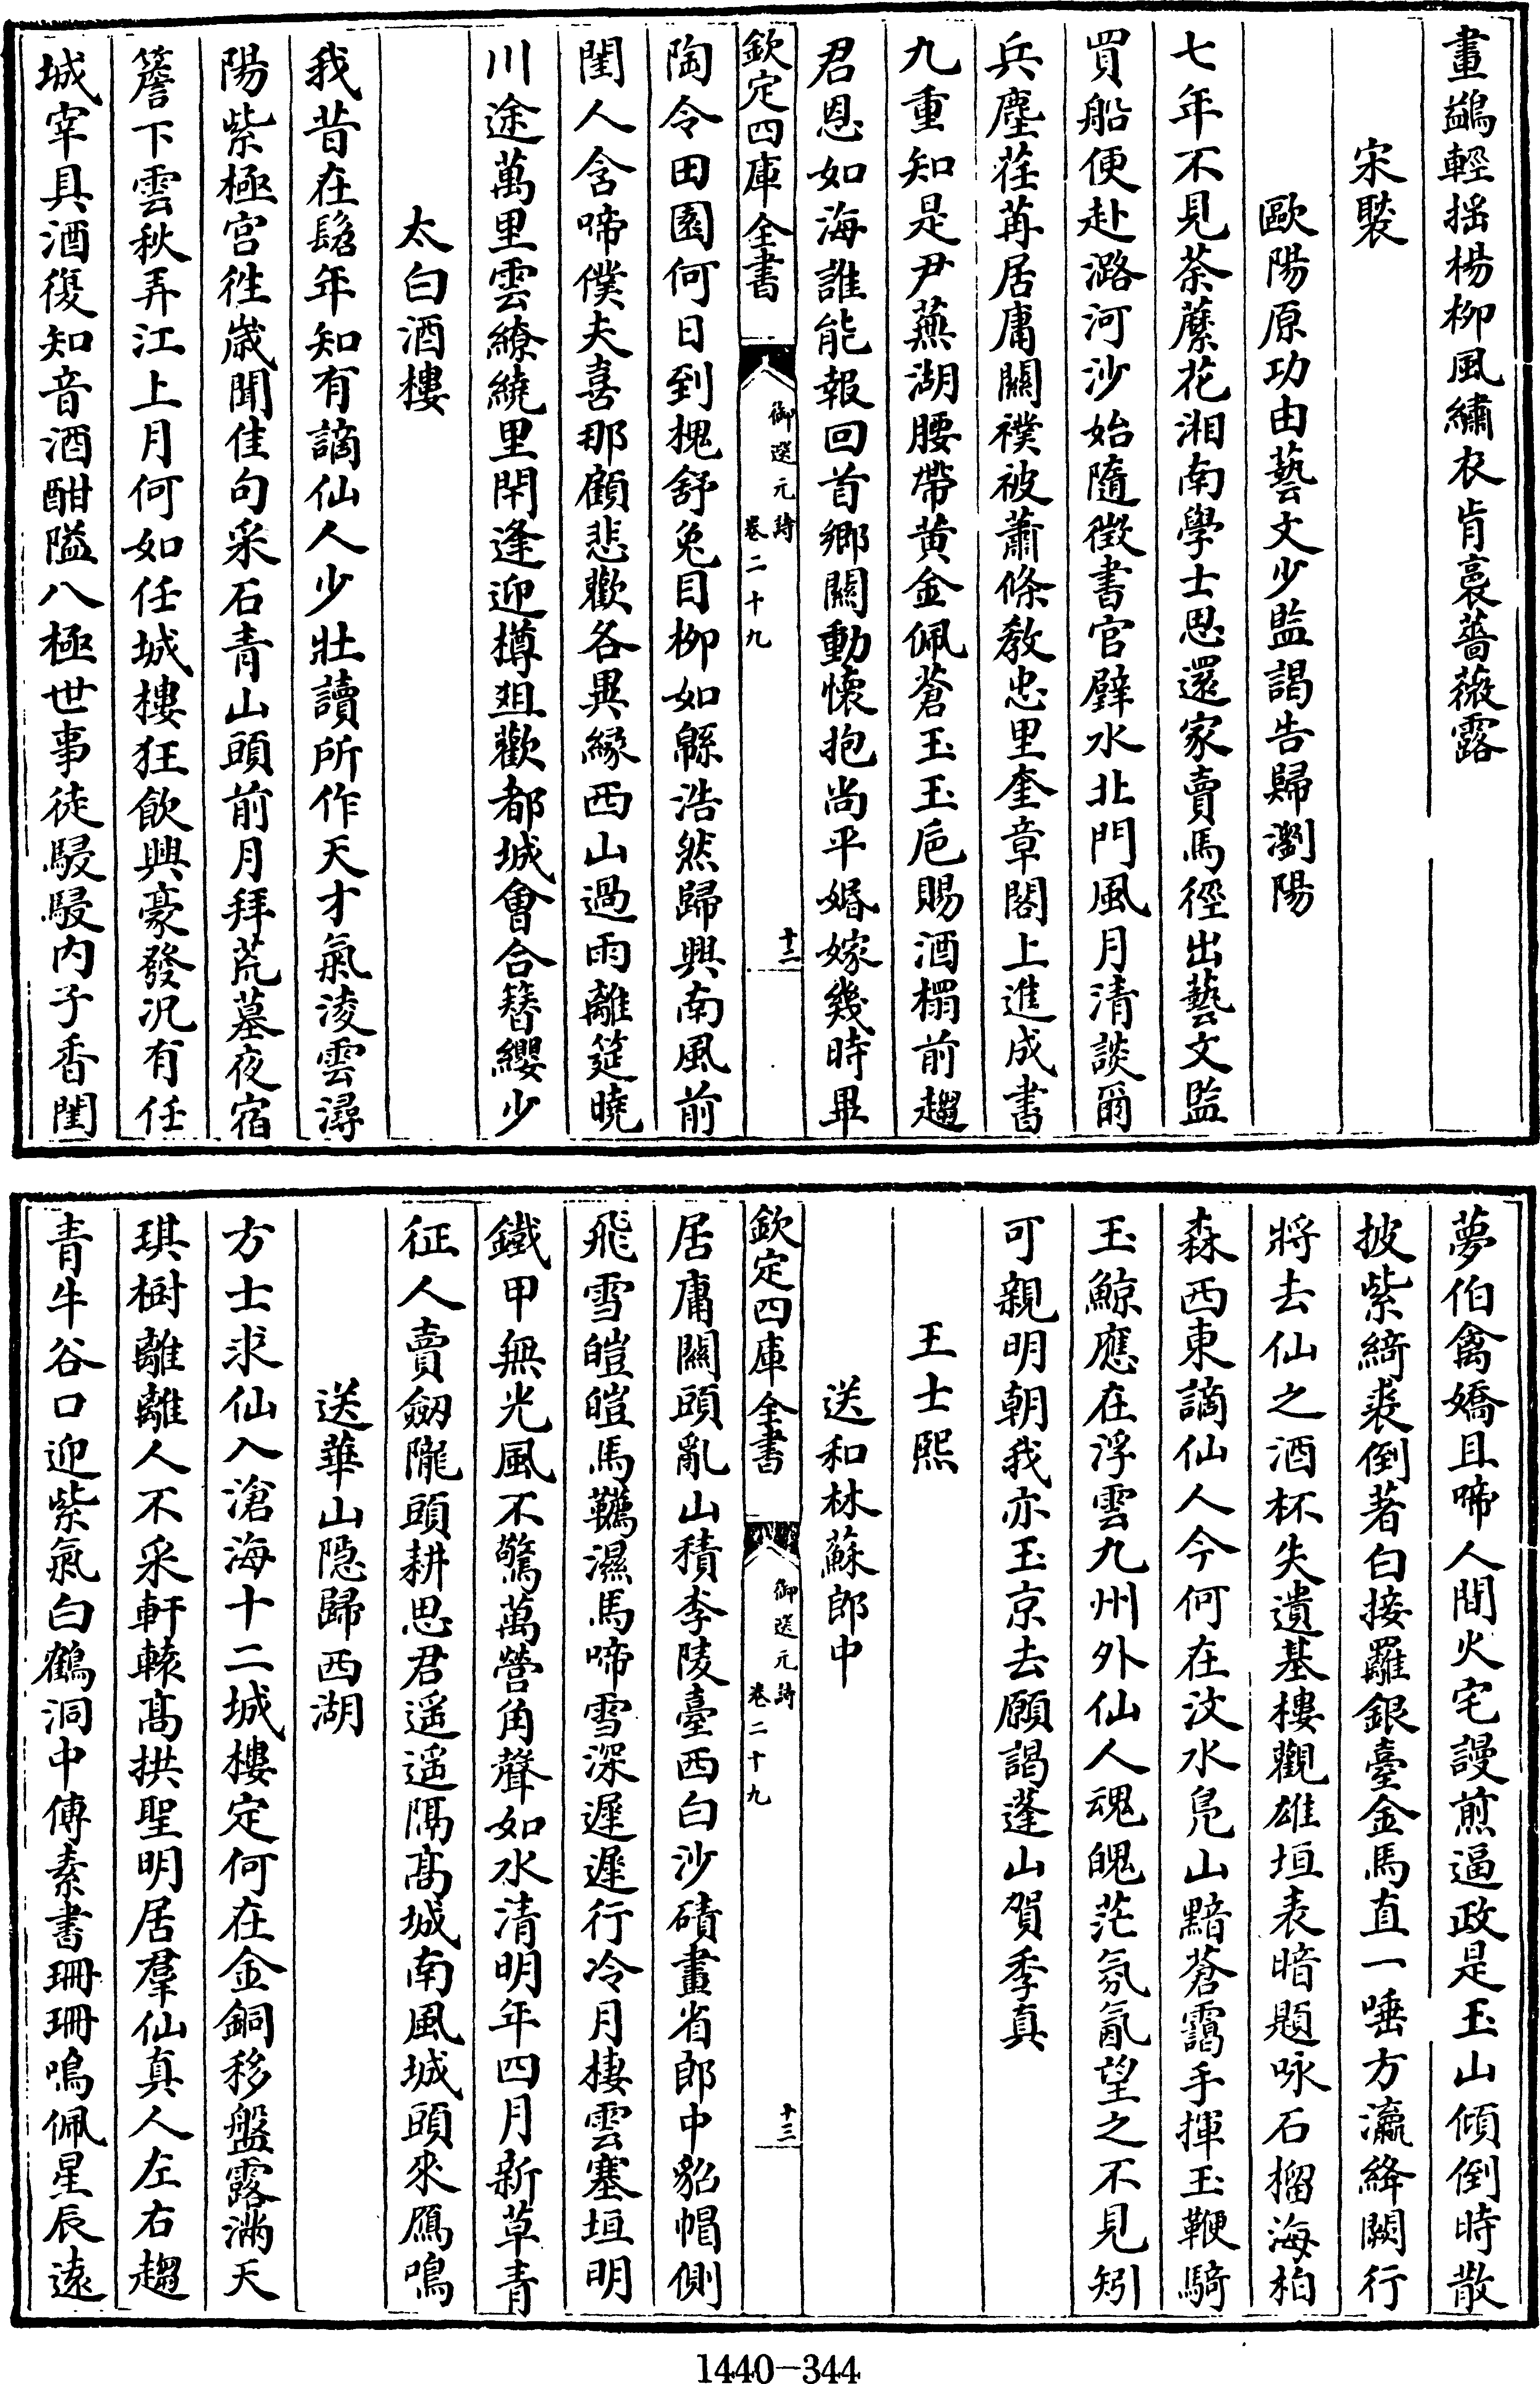 畫鷁輕揺楊柳風繡衣肯裛薔薇露
宋褧
歐陽原功由藝文少監謁告歸瀏陽
七年不見荼䕷花湘南學士思還家賣馬徑出藝文監
買船便赴潞河沙始隨徴書官璧水北門風月清談爾
兵塵荏苒居庸關襆被蕭條教忠里奎章閣上進成書
九重知是尹蕪湖腰帶黄金佩蒼玉玉巵賜酒榻前趨
君恩如海誰能報回首鄉關動懐抱尚平婚嫁幾時畢
欽定四庫全書
御選元詩
卷二十九
十二
陶令田園何日到槐舒兔目柳如緜浩然歸興南風前
閨人含啼僕夫喜那顧悲歡各異緣西山過雨離筵曉
川途萬里雲繚繞里閈逢迎樽俎歡都城㑹合簪纓少
太白酒樓
我昔在髫年知有謫仙人少壯讀所作天才氣淩雲潯
陽紫極宫徃歲聞佳句采石青山頭前月拜荒墓夜宿
簷下雲秋弄江上月何如任城樓狂飲興豪發况有任
城宰具酒復知音酒酣隘八極世事徒駸駸内子香閨
夢伯禽嬌且啼人間火宅謾煎逼政是玉山傾倒時散
披紫綺裘倒著白接羅銀臺金馬直一唾方瀛絳闕行
將去仙之酒杯失遺基樓觀雄垣表暗題咏石榴海柏
森西東謫仙人今何在汶水鳬山黯蒼靄手揮玉鞭騎
玉鯨應在浮雲九州外仙人魂魄茫氛氳望之不見矧
可親明朝我亦玉京去願謁蓬山賀季真
王士熙
送和林蘇郎中
欽定四庫全書
御選元詩
卷二十九
十三
居庸關頭亂山積李陵臺西白沙磧畫省郎中貂帽側
飛雪皚皚馬韉濕馬啼雪深遲遲行冷月棲雲塞垣明
鐵甲無光風不驚萬營角聲如水清明年四月新草青
征人賣劒隴頭耕思君遥遥隔髙城南風城頭來鴈鳴
送華山隠歸西湖
方士求仙入滄海十二城樓定何在金銅移盤露滿天
琪樹離離人不采軒轅髙拱聖明居羣仙真人左右趨
青牛谷口迎紫氣白鶴洞中傳素書珊珊鳴佩星辰遠
1440-344